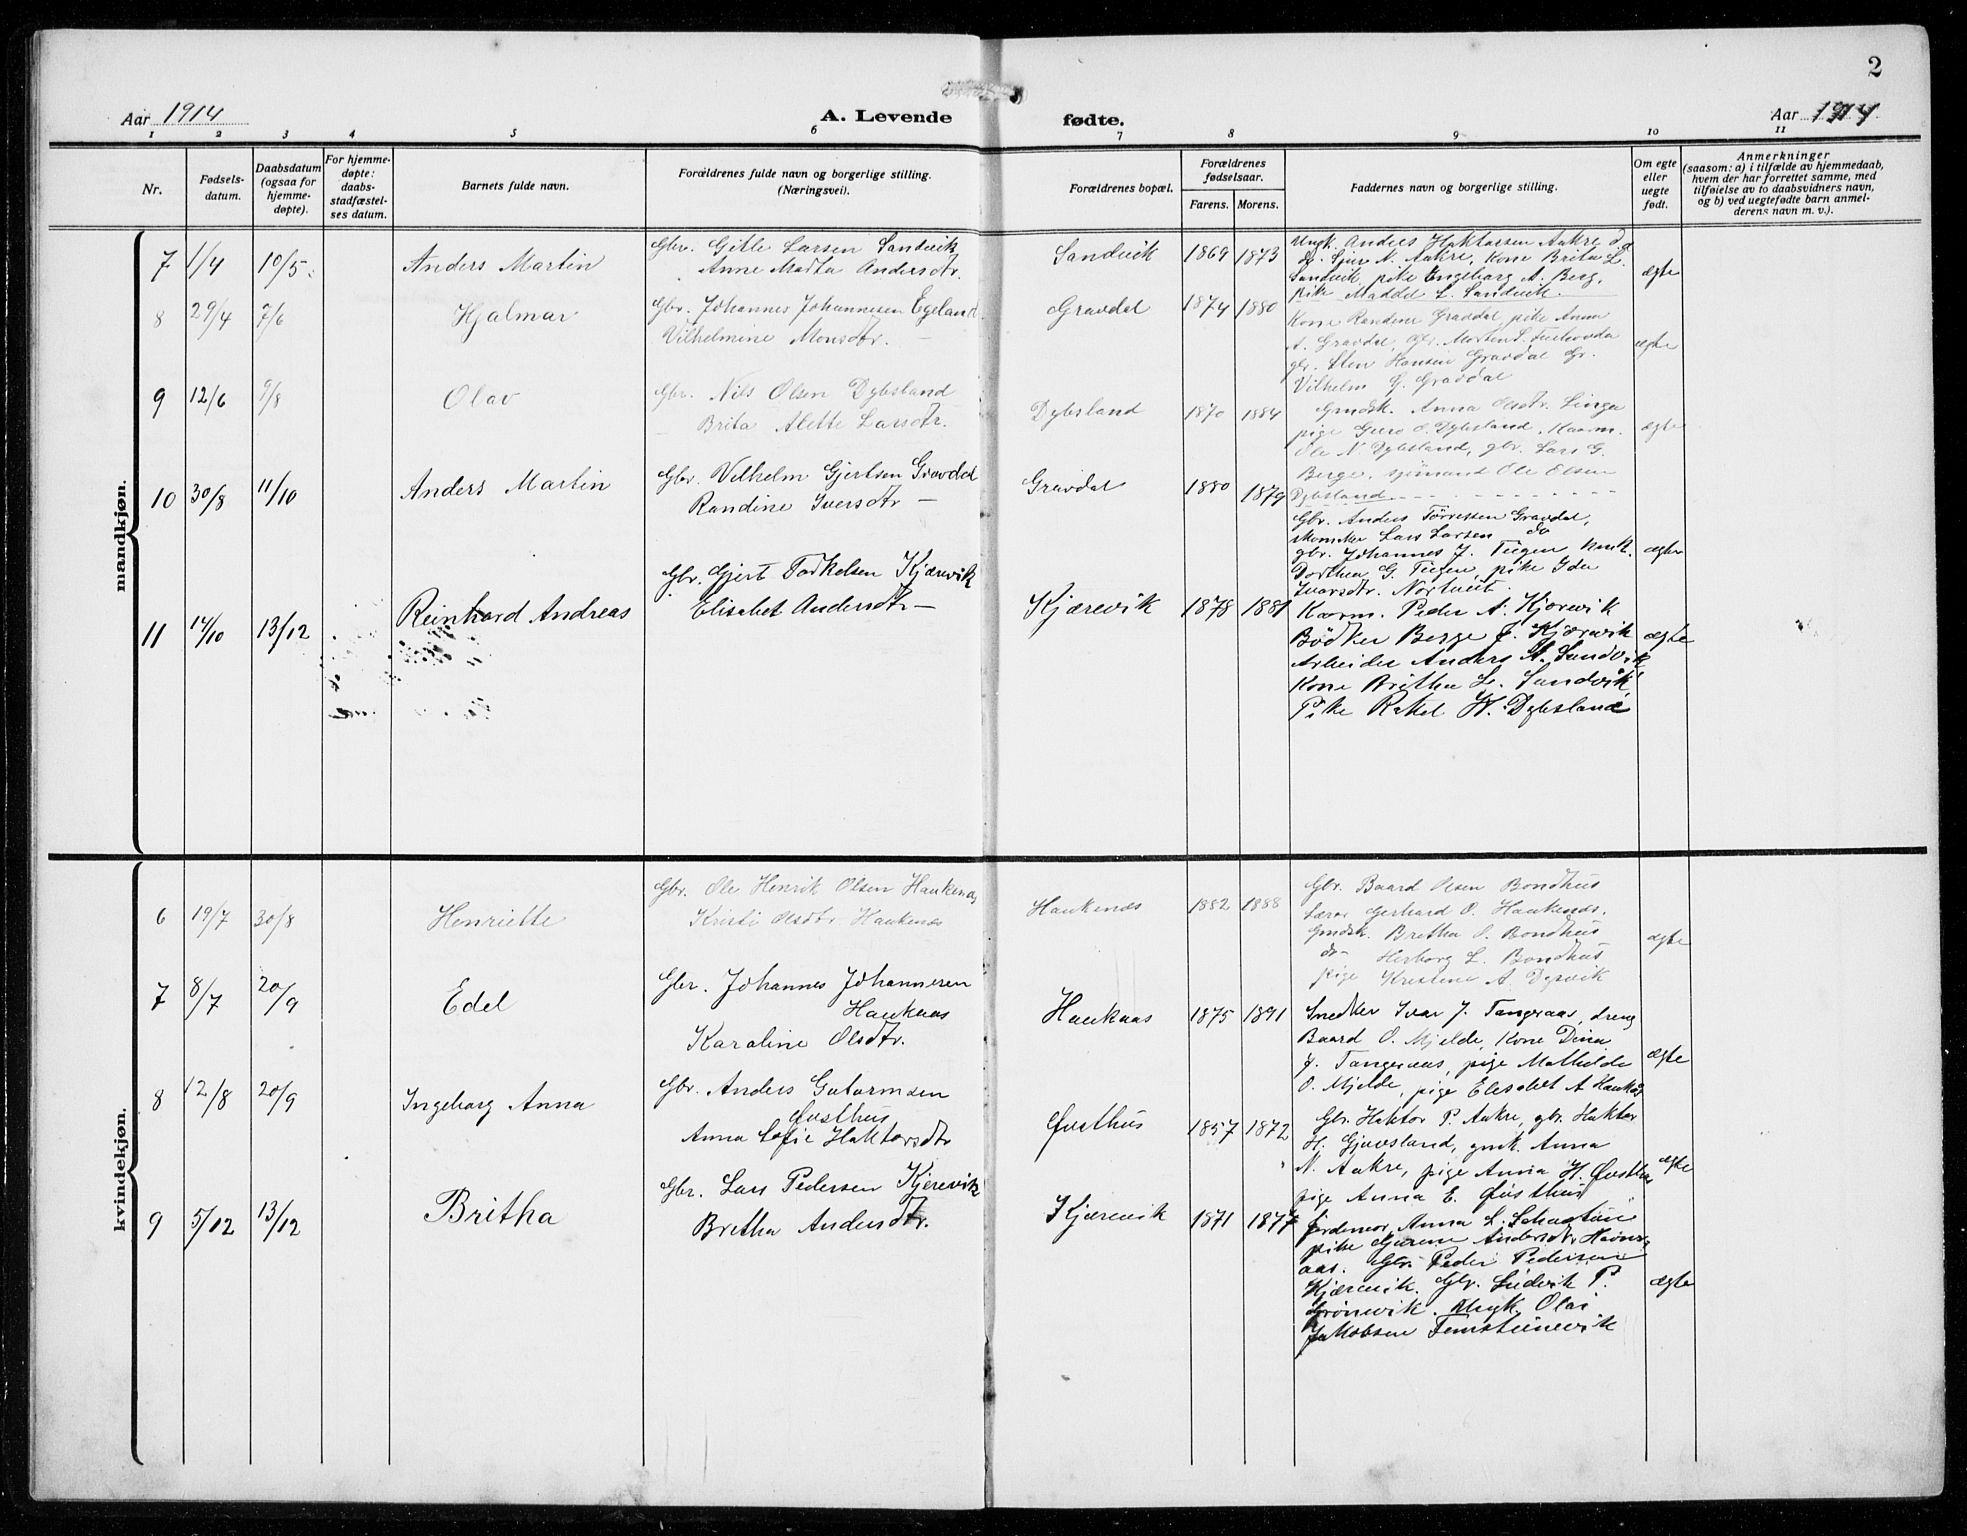 2
Aar 1914
A. Levende
fødte.
Aar 1914
1 2 3 4 5 6 7 8 9 10 11
Nr.
Fødsels-
datum.
Daabsdatum
(ogsaa for
hjemme-
døpte).
For hjemme-
døpte:
daabs-
stadfæstel-
ses datum.
Barnets fulde navn.
Forældrenes fulde navn og borgerlige stilling.
(Næringsvei).
Forældrenes bopæl.
Forældrenes
fødselsaar.
Farens. Morens.
Faddernes navn og borgerlige stilling.
Om egte
eller
uegte
født.
Anmerkninger
(saasom: a) i tilfælde av hjemmedaab,
hvem der har forrettet samme, med
tilføielse av to daabsvidners navn,
og b) ved uegtefødte barn anmel-
derens navn m. v.).
mandkjøn.
7 1/4 10/5
Anders Martin
Gbr. Gitle Larsen Sandvik
Anne Marta Andersdtr.
Sandvik 1869 1873
Ungk. Anders Haktorsen Aakre
N. Aakre, Kone Brita L.
Sandvik pike Engeborg A. Berg,
pike Maddel L. Sandvik.
ægte
8 29/4 7/6
Hjalmar
Gbr. Johannes Johannesen Egeland
Vilhelmine Monsdtr.
Gravdal 1874 1880
Kone Randine Gravdal, pike Anna
A. Gravdal, Gbr. Morten S.
gbr. Sten Hansen Gravdal Gr.
Vilhelm G. Gravdal
ægte
9 12/6 9/8
Olav
Gbr. Nils Olsen Dybsland
Brita Alette Larsdtr.
Dybsland 1870 1884
Gmdsk. Anna Olsdtr. Linga
pige Guro O. Dybsland,
Ole N. Dybsland, gbr. Lars G.
Berge, sjömand Ole Olsen
Dybsland
ægte
10 30/8 11/10
Anders Martin
Gbr. Vilhelm Gjertsen Gravdal
Randine Iversdtr —
Gravdal 1880 1879
Gbr. Anders Torressen Gravdal,
Lars Larsen do
gbr. Johannes J. Teigen
Dorthea G. Teigen pike Ida
Ivarsdtr. Nortveit.
ægte
11 14/10 13/12
Reinhard Andreas
Gbr. Gjert Torkelsen Kjærevik
Elisabet Andersdtr —
Kjærevik 1878 1881
Kaarm. Peder A. Kjærevik
Bödker Berge J. Kjærevik
Arbeider Anders A. Sandvik
Kone Britha L. Sandvik
Pike Rakel H. Dybsland
ægte
kvindekjøn.
6 19/7 30/8
Henriette
Gbr. Ole Henrik Olsen Haukenæs
Kristi Olsdtr Haukenæs
Haukenæs 1882 1888
Gbr. Baard Olsen Bondhus
Lærer Gerhard O. Haukenæs.
Gmdsk. Bretha O. Bondhus
do Herborg L. Bondhus
pige Kristine A. Dysvik
ægte
7 8/7 20/9
Edel
Gbr. Johannes Johannesen
Haukaas
Karoline Olsdtr.
Haukaas 1875 1891
Snedker Ivar J. Tangeraas, dreng
Baard O. Mjelde, Kone Dina
J. Tangeraas, pige Mathilde
O. Mjelde, pige Elisabet A Haukås
ægte
8 12/8 20/9
Ingeborg Anna
Gbr. Anders Gutormsen
Øvsthus
Anna Sofie Haktorsdtr
Øvsthus 1857 1872
Gbr. Haktor P. Aakre, gbr. Haktor
H. Gjuvsland, gmk. Anna
N. Aakre, pige Anna H. Øvsthus
pige Anna E. Øvsthus
ægte
9 5/12 13/12
Britha
Gbr. Lars Pedersen Kjerevik
Bretha Andersdtr.
Kjærevik 1871 1877
Jordemor Anna L.
pike Andersdtr.
aas. Gbr. Peder Pedersen
Kjærevik. Gbr. Ludvik P.
Grönevik. Ungk. Olai
Jakobsen Femsteinevik
ægte